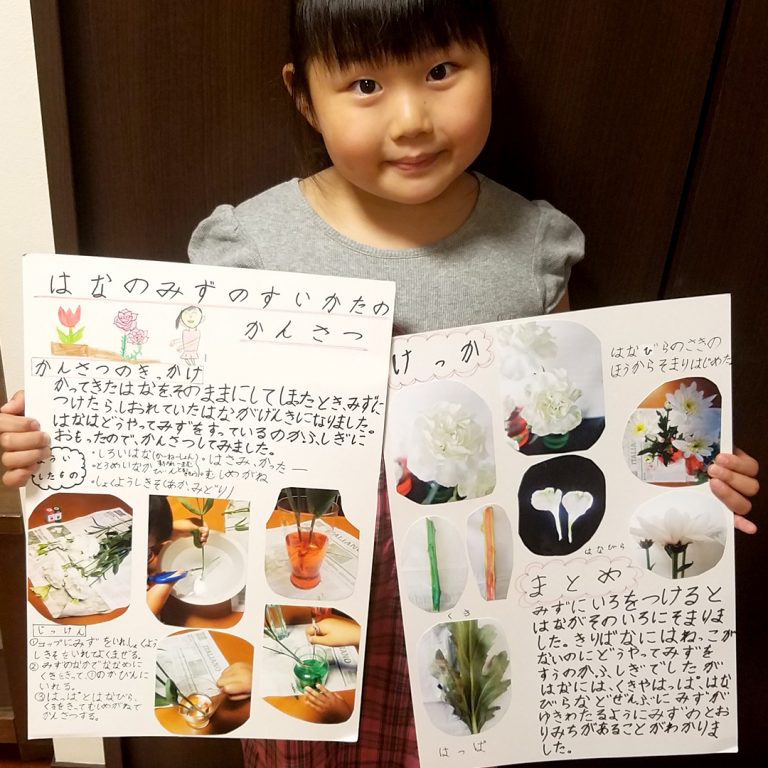 はなのみずのすいかたの
かんさつ
かんさつのきっかけ
かってきたはなをそのままにしてしまたとき、みずに
つけたら、しおれていたはながげんきになりました。
はなはどうやってみずをすっているのかふしぎに
おもったので、かんさつしてみました。
ようい
したもの
・しろいはな(かーねーしょん)・はさみ、かったー
・とうめいなか ・むしめがね
・しょくようしきそ(あか、みどり)
じっけん
①コップにみずをいれしょくよう
しきそをいれてよくまぜる。
②みずのなかでななめに
くきをきって、①のかびんに
いれる。
③はっぱとはなびら、
くきをきってむしめがねで
かんさつする。
けっか
はなびらのさきの
ほうからそまりはじめた
はなびら
くき
はっぱ
まとめ
みずにいろをつけると
はながそのいろにそまりま
した。きりばなにはねっこが
ないのにどうやってみずを
すうのかふしぎでしたが
はなには、くきやはっぱ、はな
びらなどぜんぶにみずが
ゆきわたるようにみずのとお
りみちがあることがわかりま
した。